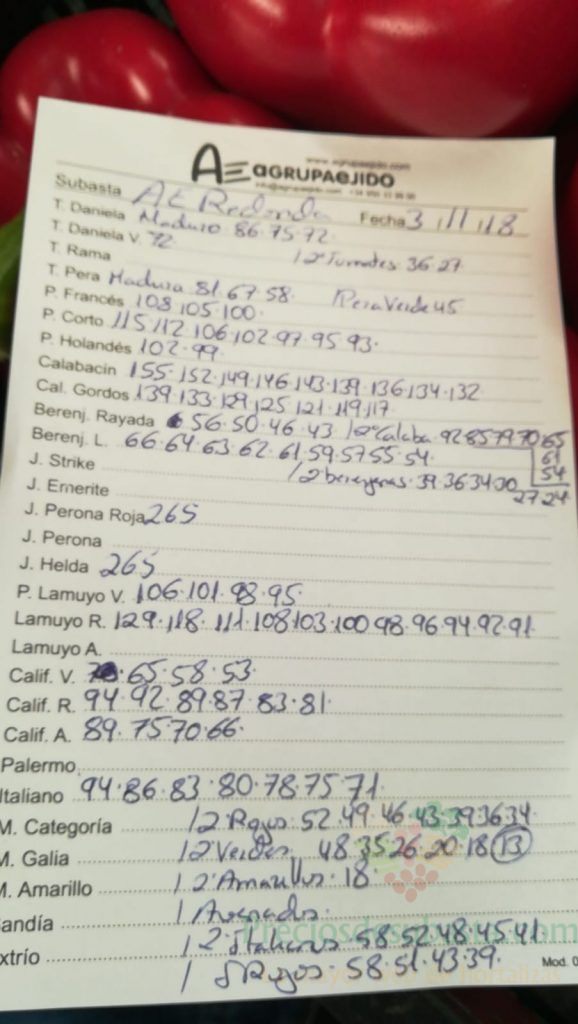 AE AGRUPAEJIDO
Subasta AE Redonda Fecha 3/11/18
T. Daniela Maduro 86·75·72
T. Daniela V. 72
T. Rama 12ª Tomates·36·27
T. Pera Madura 81·67·58· Pera Verde 45
P. Francés 108·105·100·
P. Corto 115·112·106·102·97·95·93·
P. Holandés 102·99
Calabacín 155·152·149·146·143·139·136·134·132
Cal. Gordos 139·133·129·125·121·119·117
Berenj. Rayada 56·50·46·43 12ª Calaba·92 85 79 70 65
61
54
Berenj. L. 66·64·63·62·61·59·57 55·54
J. Strike 12 berenjenas·39·36 34 30 27 24
J. Emerite
J. Perona Roja 265
J. Perona
J. Helda 265
P. Lamuyo V. 106·101·98·95·
Lamuyo R. 129·118·111·108 103·100·98·96·94·92·91
Lamuyo A.
Calif. V. ·65·58·53·
Calif. R. 94·92·89·87·83·81·
Calif. A. 89·75 70·66·
Palermo
Italiano 94·86·83·80·78·75·71
M. Categoría 12ª Rojos·52·49·46·43·39 36 34
M. Galia 12ª Verdes 48 35 26·20·18 13
M. Amarillo 12ª Amarillos·18·
andía 1
xtrío 12ª Italianos·58·52·48·45·41
1 Rojos·58·51·43·39·
Mod. 0
Preciosdesubasta.com